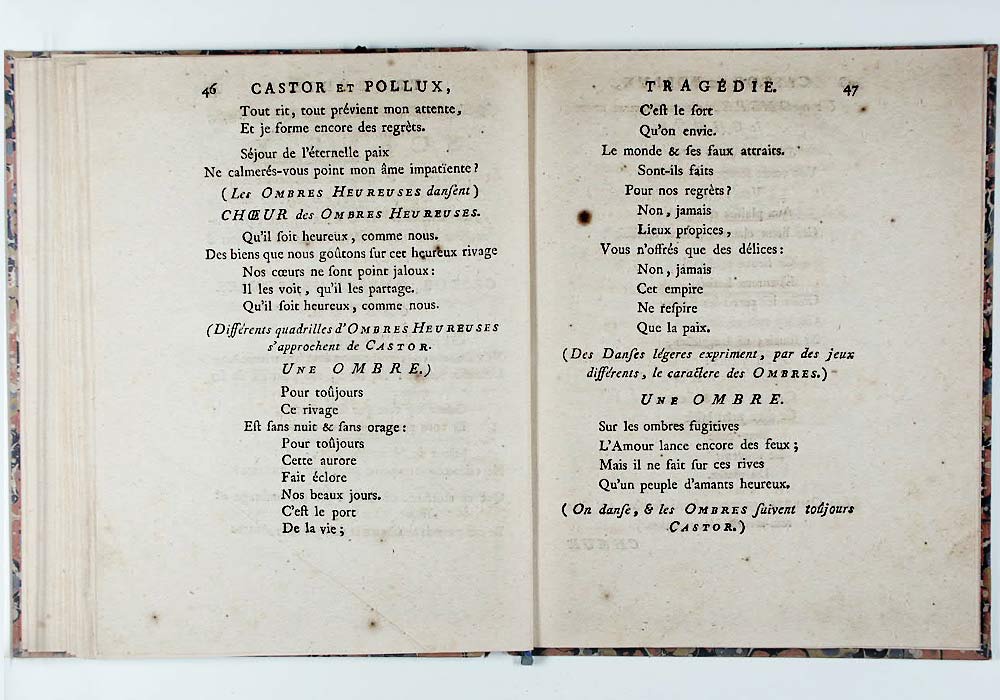 46 CASTOR ET POLLUX,
Tout rit, tout prévient mon attente,
Et je forme encore des regrèts.
Séjour de l'éternelle paix
Ne calmerés-vous point mon âme impatïente?
(Les OMBRES HEUREUSES danſent)
CHŒUR des OMBRES HEUREUSES.
Qu'il ſoit heureux, comme nous.
Des biens que nous goûtons ſur cet heureux rivage
Nos cœurs ne ſont point jaloux:
Il les voit, qu'il les partage.
Qu'il ſoit heureux, comme nous.
(Différents quadrilles d'OMBRES HEUREUSES
s'approchent de CASTOR.
UNE OMBRE.)
Pour toûjours
Ce rivage
Eſt ſans nuit & ſans orage:
Pour toûjours
Cette aurore
Fait éclore
Nos beaux jours.
C'eſt le port
De la vie;
TRAGÉDIE. 47
C'eſt le ſort
Qu'on envie.
Le monde & ſes faux attraits.
Sont-ils faits
Pour nos regrèts?
Non, jamais
Lieux propices,
Vous n'offrés que des délices:
Non, jamais
Cet empire
Ne reſpire
Que la paix.
(Des Danſes légeres expriment, par des jeux
différents, le caractere des OMBRES.)
UNE OMBRE.
Sur les ombres fugitives
L'Amour lance encore des feux;
Mais il ne fait ſur ces rives
Qu'un peuple d'amants heureux.
(On danſe, & les OMBRES ſuivent toûjours
CASTOR.)